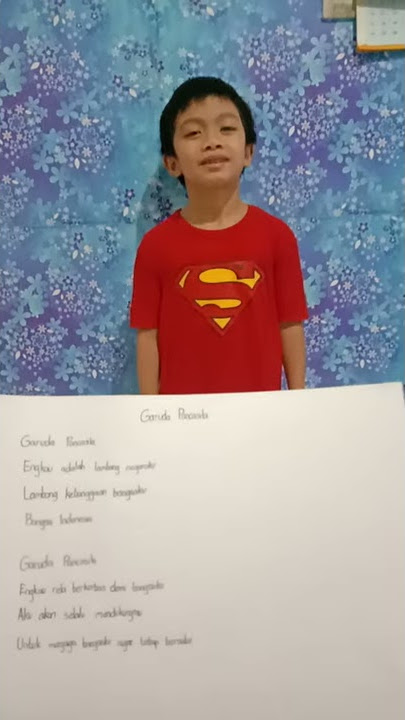 S
Garuda Pancasila
Garuda Pancasila
Engkau adalah lambang negaraku
Lambang kebanggaan bangsaku
Bangsa Indonesia
Garuda Pancasila
Engkau rela berkorban demi bangsaku
Aku akan selalu mendukungmu
Untuk menjaga bangsaku agar tetap bersatu